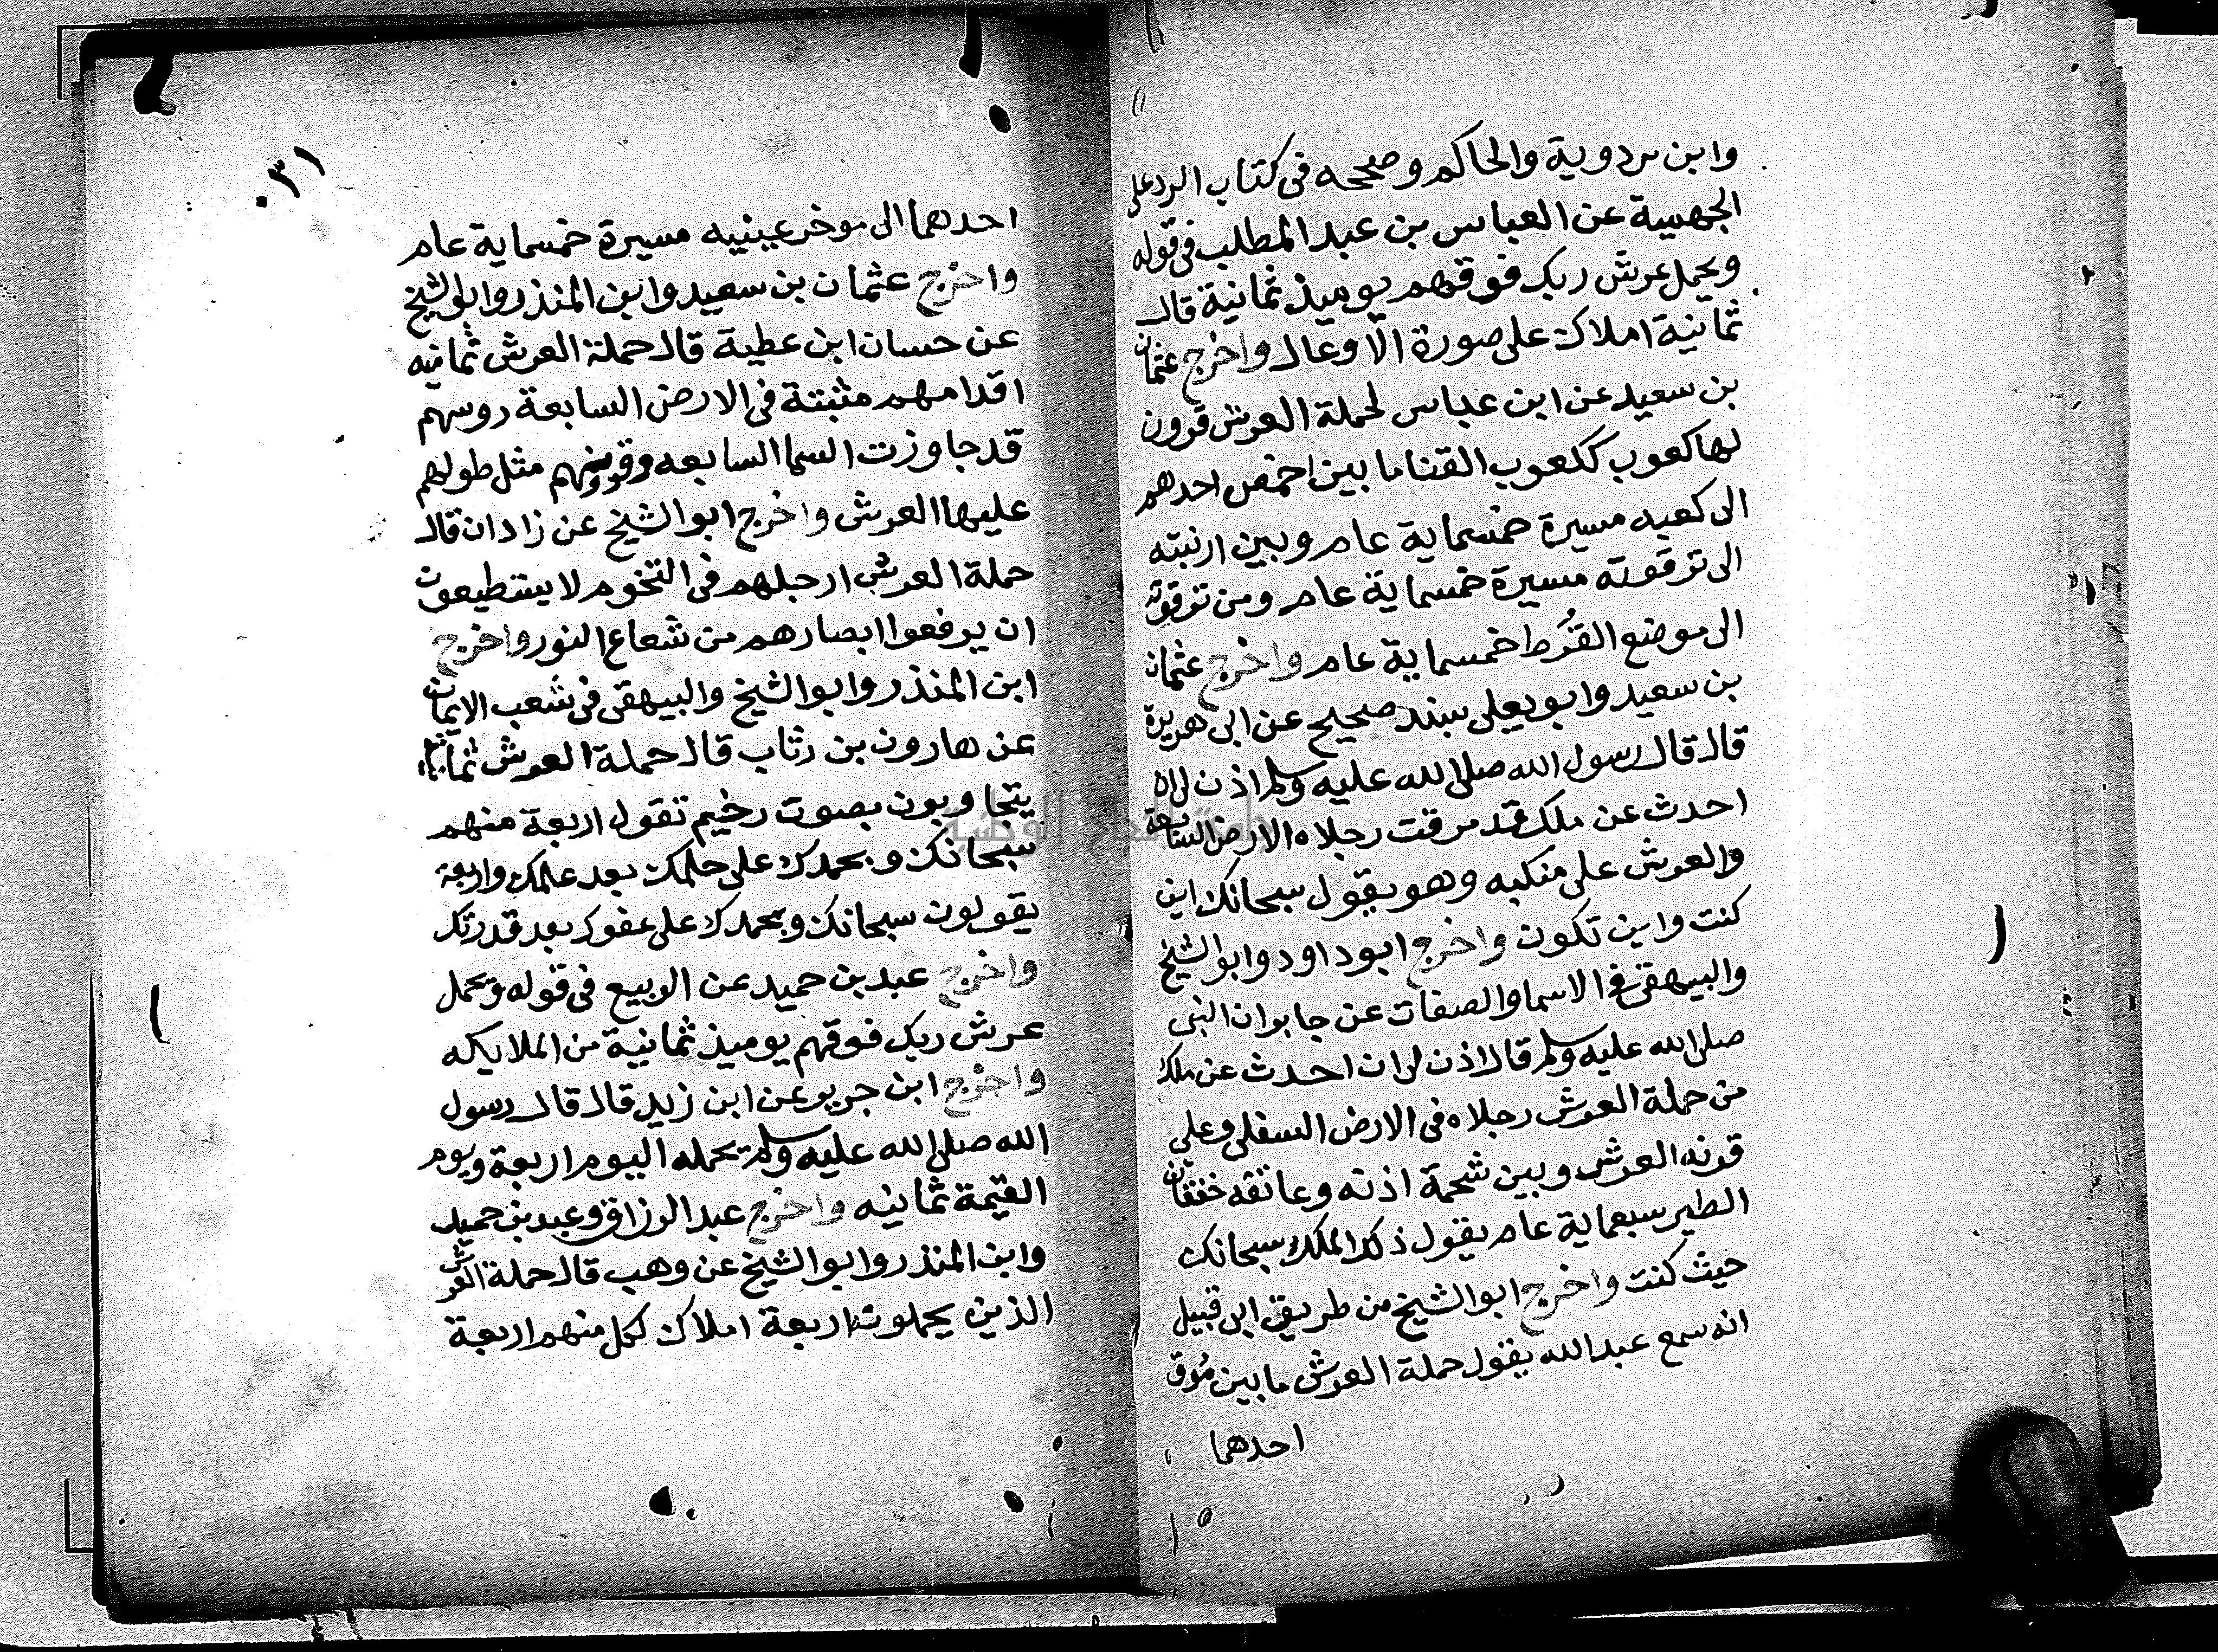 وابن مردوية والحاكم وصححه فى كتاب الرد على
الجهمية عن العباس بن عبد المطلب فى قوله
ويحمل عرش ربك فوقهم يوميذ ثمانية قال
ثمانية املاك على صورة الاوعال واخرج عثمان
بن سعيد عن ابن عباس لحملة العرش قرون
لها كعوب ككعوب القنا ما بين اخمص احدهم
الى كعبه مسيرة خمسماية عام وبين ارنبته
الى ترقوته مسيرة خمسماية عام ومن ترقوته
الى موضع القُرط خمسماية عام واخرج عثمان
بن سعيد وابو يعلى بسند صحيح عن ابى هريرة
قال قال رسول الله صلى الله عليه وسلم اذن لى ان
احدث عن ملك قد مرقت رجلاه الارض السابعة
والعرش على منكبه وهو يقول سبحانك اين
كنت واين تكون واخرج ابو داود وابو الشيخ
والبيهقى فى الاسما والصفات عن جابر ان النبى
صلى الله عليه وسلم قال اذن لى ان احدث عن ملك
من حملة العرش رجلاه فى الارض السفلى وعلى
قرنه العرش وبين شحمة اذنه وعاتقه خفقان
الطير سبعماية عام يقول ذلك الملك سبحانك
حيث كنت واخرج ابو الشيخ من طريق ابى قبيل
انه سمع عبد الله يقول حملة العرش ما بين مُوق
احدهما
٠٣١
احدهما الى موخر عينيه مسيرة خمسماية عام
واخرج عثمان بن سعيد وابن المنذر وابو الشيخ
عن حسان ابن عطية قال حملة العرش ثمانيه
اقدامهم مثبتة فى الارض السابعة روسهم
قد جاوزت السما السابعه وقرونهم مثل طولهم
عليها العرش واخرج ابو الشيخ عن زادان قال
حملة العرش ارجلهم فى التخوم لا يستطيعون
ان يرفعوا ابصارهم من شعاع النور واخرج
ابن المنذر وابو الشيخ والبيهقى فى شعب الايمان
عن هارون بن رثاب قال حملة العرش ثمانية
يتجاوبون بصوت رخيم تقول اربعة منهم
سبحانك وبحمدك على حلمك بعد علمك واربعة
يقولون سبحانك وبحمدك على عفوك بعد قدرتك
واخرج عبد بن حميد عن الربيع فى قوله ويحمل
عرش ربك فوقهم يوميذ ثمانية من الملايكه
واخرج ابن جرير عن ابن زيد قال قال رسول
الله صلى الله عليه وسلم يحمله اليوم اربعة ويوم
القيمة ثمانيه واخرج عبد الرزاق وعبد بن حميد
وابن المنذر وابو الشيخ عن وهب قال حملة العرش
الذين يحملونه اربعة املاك لكل منهم اربعة